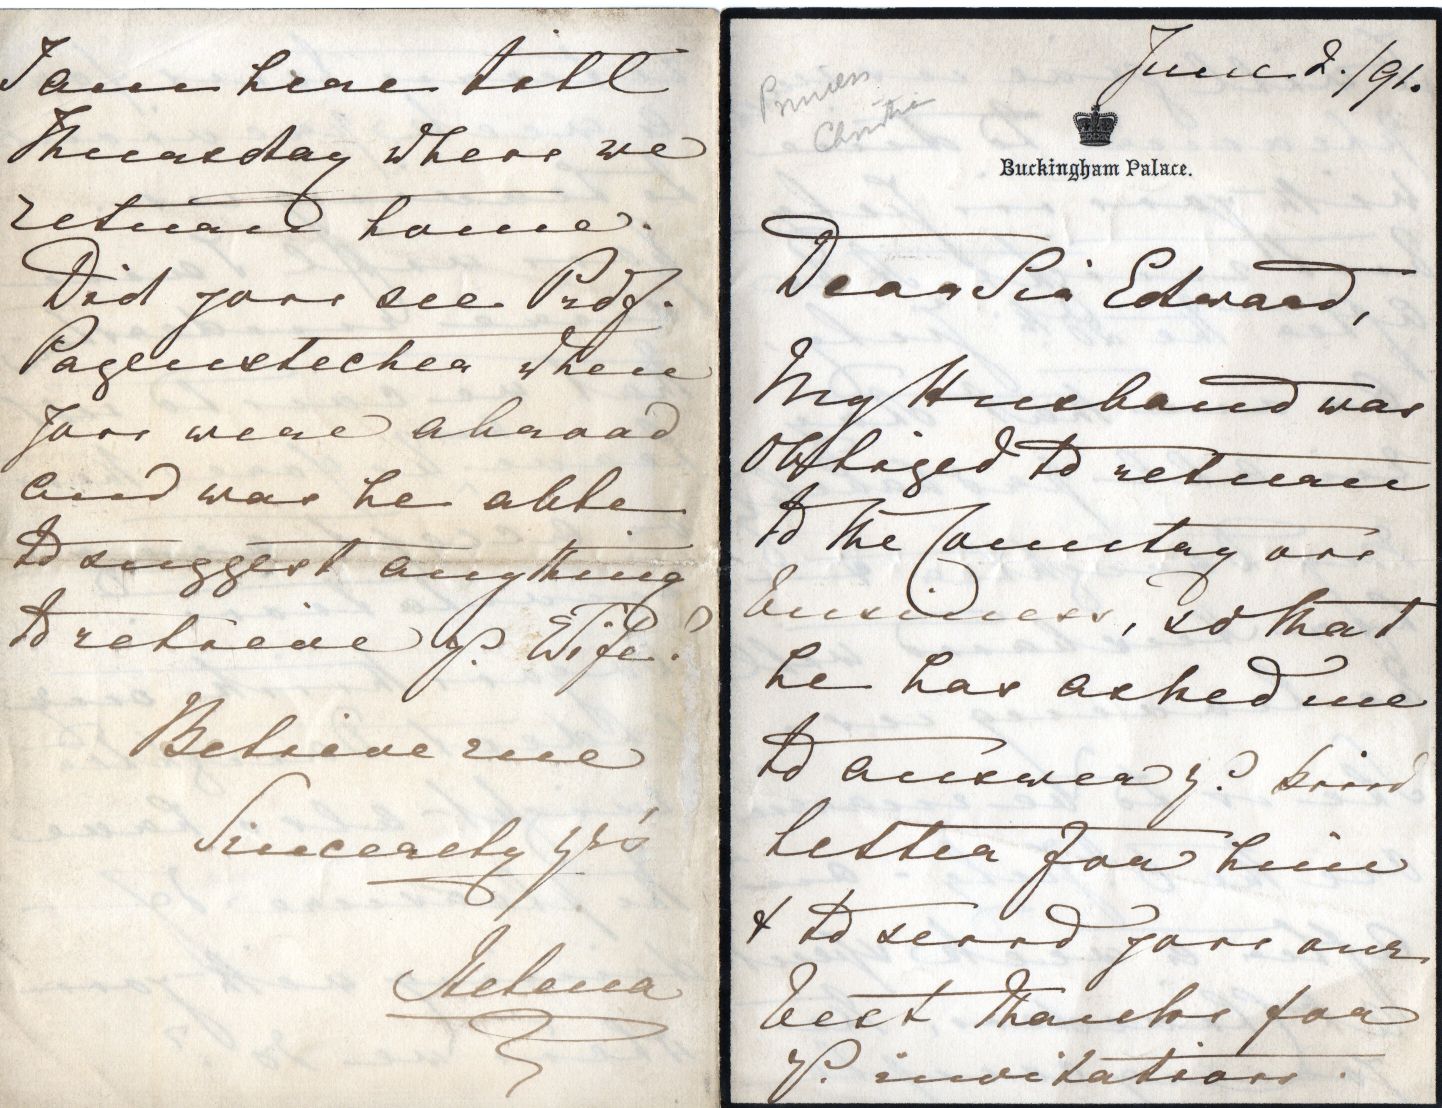 June 2./91.
Princess
Christian
Buckingham Palace.
Dear Sir Edward,
My Husband was
obliged to return
to the Country on
business, so that
he has asked me
to answer yr. kind
letter for him
& to send you our
best thanks for
yr. invitation.
I am here till
Thursday when we
return home.
Did you see Prof.
Pagenstecher when
you were abroad
and was he able
to suggest anything
to relieve yr. Wife?
Believe me
Sincerely yrs
Helena